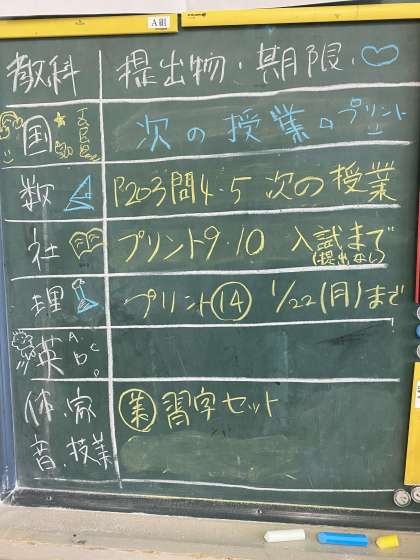 A組
教科 提出物・期限・♡
国 次の授業 プリント
数 P203問4・5 次の授業
社 プリント9・10 入試まで
(提出なし)
理 プリント⑭ 1/22(月)まで
英 A B C D
体・家
音・技美
習字セット